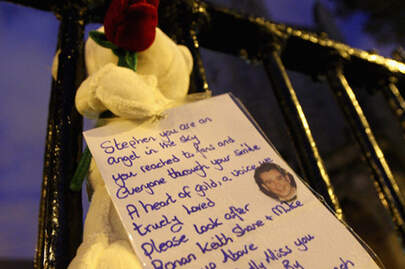 Stephen you are an
angel in the sky
you reached to fans and
everyone through your smile
A heart of gold, a voice we
truely loved
Please look after
Ronan Keith Shane & Mike
up Above
Miss you
By